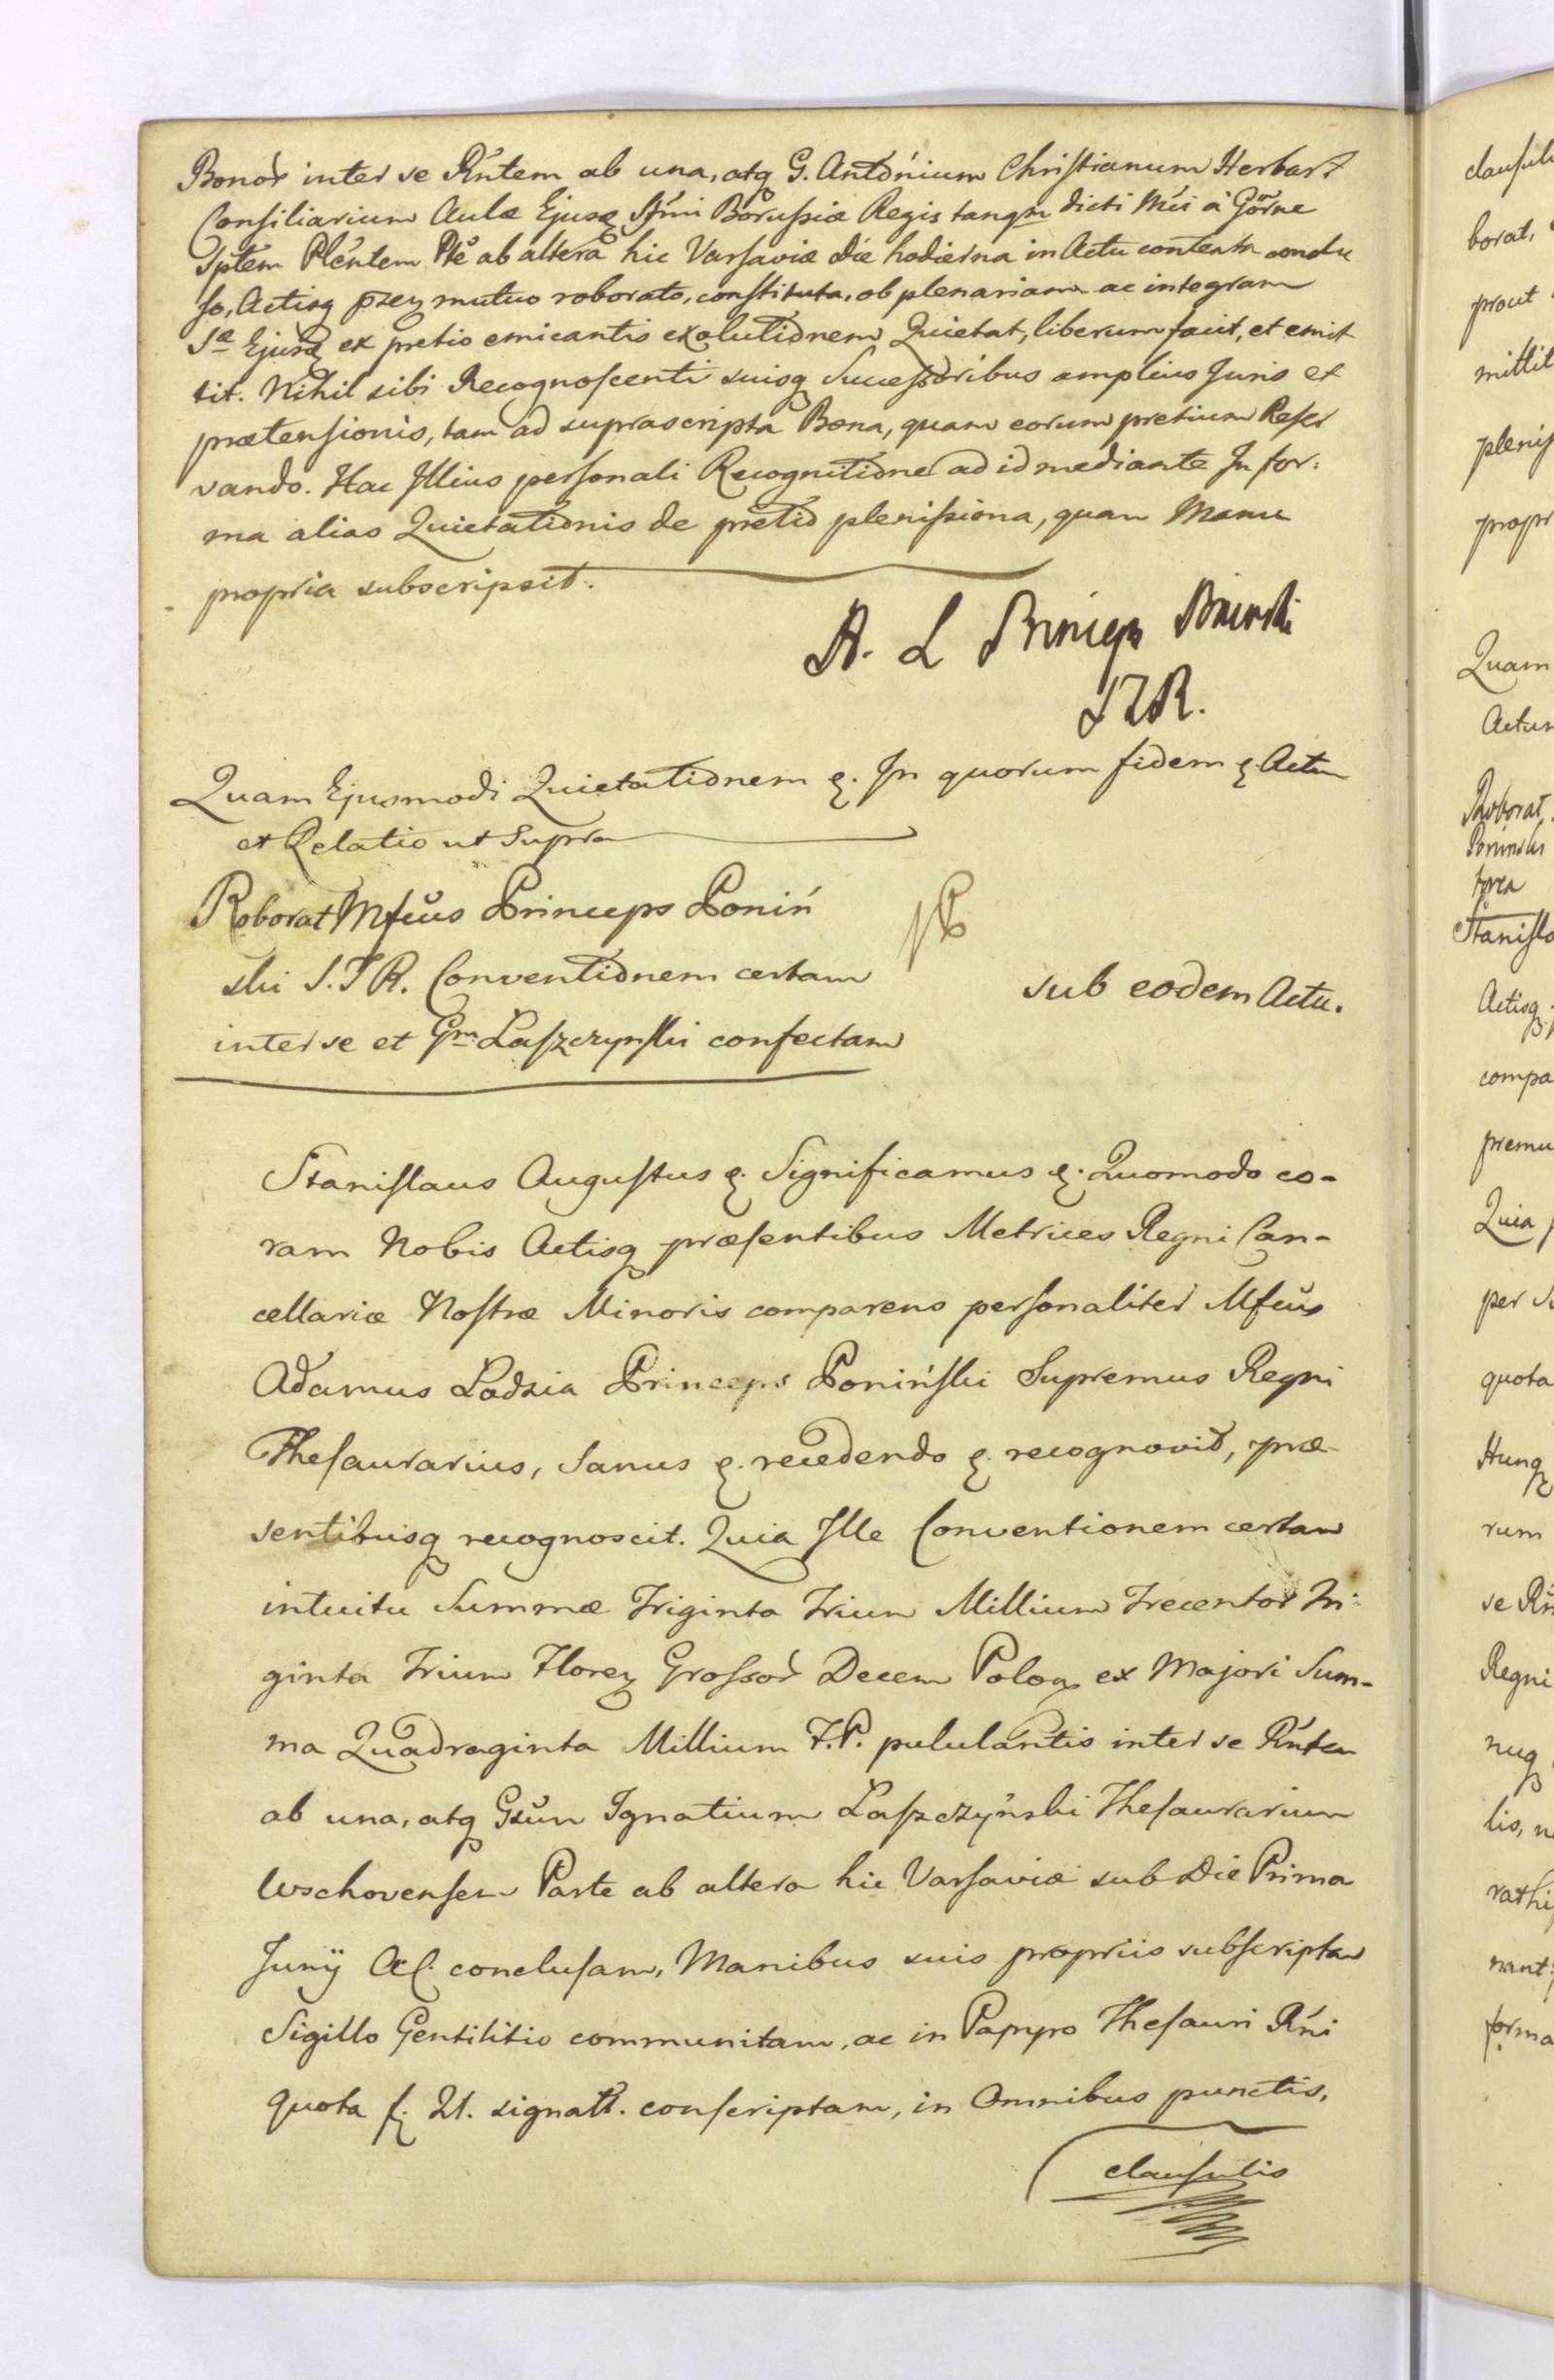 Bonor̀ inter se Rńtem ab una, atq G. Antonium Christianum Herbart
Consiliarium Aulæ Ejusq Sřmi Borussiæ Regis tanqm dicti Mci à Görne
Sptem Plentem Pte ab altera hic Varsaviæ die hodierna in Actu contentn conclu
so, Actisq pzeż mutuo roborato, constituta, ob plenariam ac integram
Sæ Ejusq ex pretio emicantis exolutionem Quietat, liberum facit, et emit
tit. Nihil sibi Recognoscenti suisq Successoribus amplius Juris et
prætensionis, tam ad suprascripta Bona, quam eorum pretium Reser
vando. Hac Illius personali Recognitione ad id mediante In for:
ma alias Quietationis de pretio plenissiona, quam Manu
propria subscripsit.
A. L Princeps Poninski
STR.
Quam Ejusmodi Quietationem ę. In quorum fidem ę. Actum
et Relatio ut Supra
Roborat Mfcus Princeps Poniń
ski S.T R. Conventionem certam
inter se et Gm Laszczynski confectam
sub eodem Actu.
Stanislaus Augustus ę. Significamus ę. Quomodo co-
ram Nobis Actisq præsentibus Metrices Regni Can-
cellariæ Nostræ Minoris comparens personaliter Mfcus
Adamus Lodzia Princeps Poniński Supremus Regni
Thesaurarius, Sanus ę. recedendo ę. recognovit, præ-
sentibusq recognoscit. Quia Ille Conventionem certam
intuitu Summæ Triginta Trium Millium Trecentor̀ Tri-
ginta Trium Florez Grossor̀ Decem Polon ex Majori Sum-
ma Quadraginta Millium F.P. pululantis inter se Rńtem
ab una, atq Gsŭm Ignatium Laszczyński Thesaurarium
Wschovensem Parte ab altera hic Varsaviæ sub Die Prima
Junÿ A.c. conclusam, Manibus suis propriis subscriptam
Sigillo Gentilitio communitam, ac in Papyro Thesauri Rńi
quota f: 21. signatt. conscriptam, in Omnibus punctis,
clausulis
clausul
borat,
prout
mittit
plenis
propr
Quam
Actum
Roborat,
Poninski
Stanisla
Actisq
compa
premu
Quia
per
quota
Hunq
rum
se Rń
Regni
nuq
lis,
rathi
nant
forma